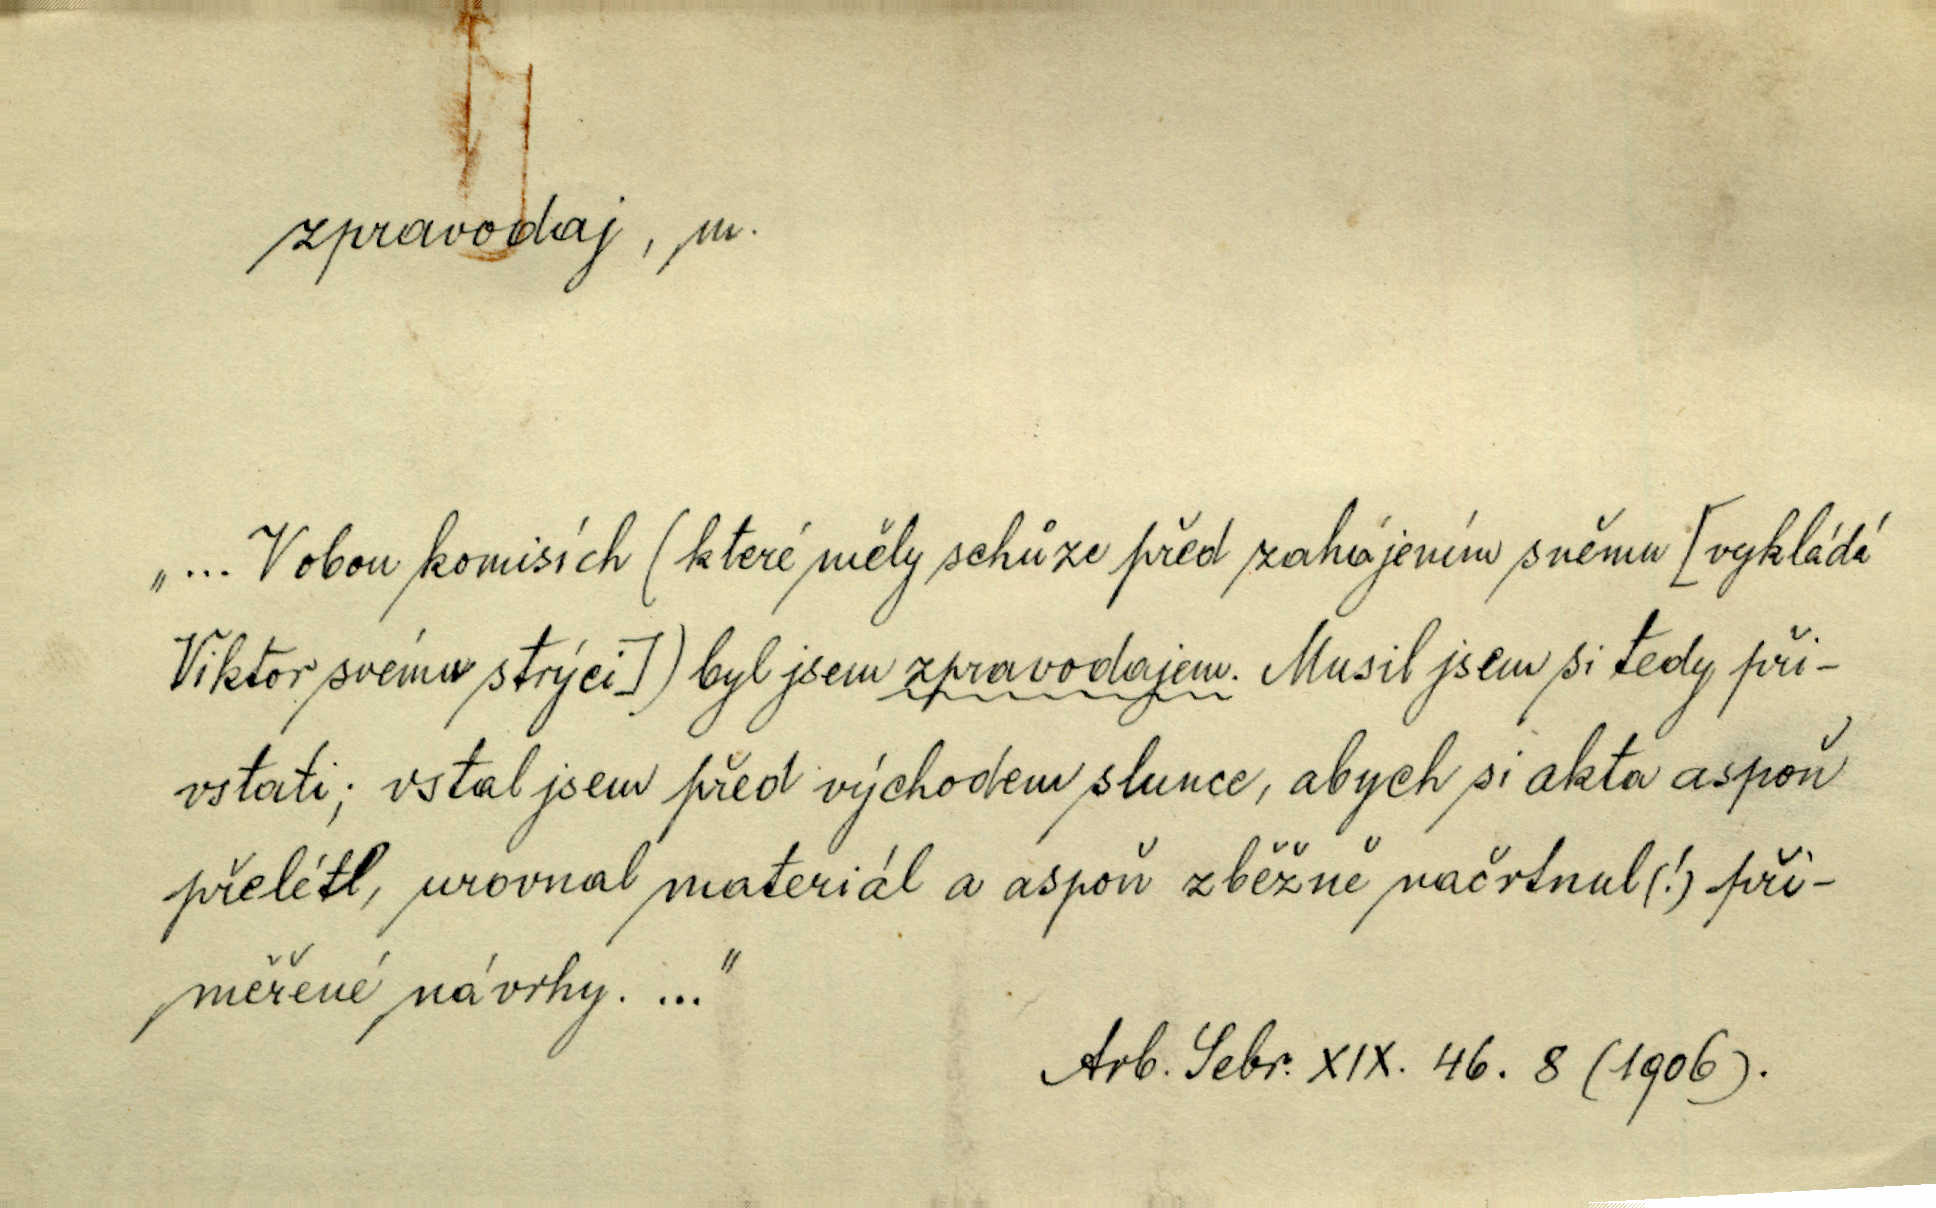 zpravodaj, m.
„... V obou komisích (které měly schůze před zahájením sněmu [vykládá
Viktor svému strýci]) byl jsem zpravodajem. Musil jsem si tedy při-
vstati; vstal jsem před východem slunce, abych si akta aspoň
přelétl, urovnal materiál a aspoň zběžně načrtnul (!) při-
měřené návrhy. ..."
Arb. Sebr. XIX. 46. 8 (1906).